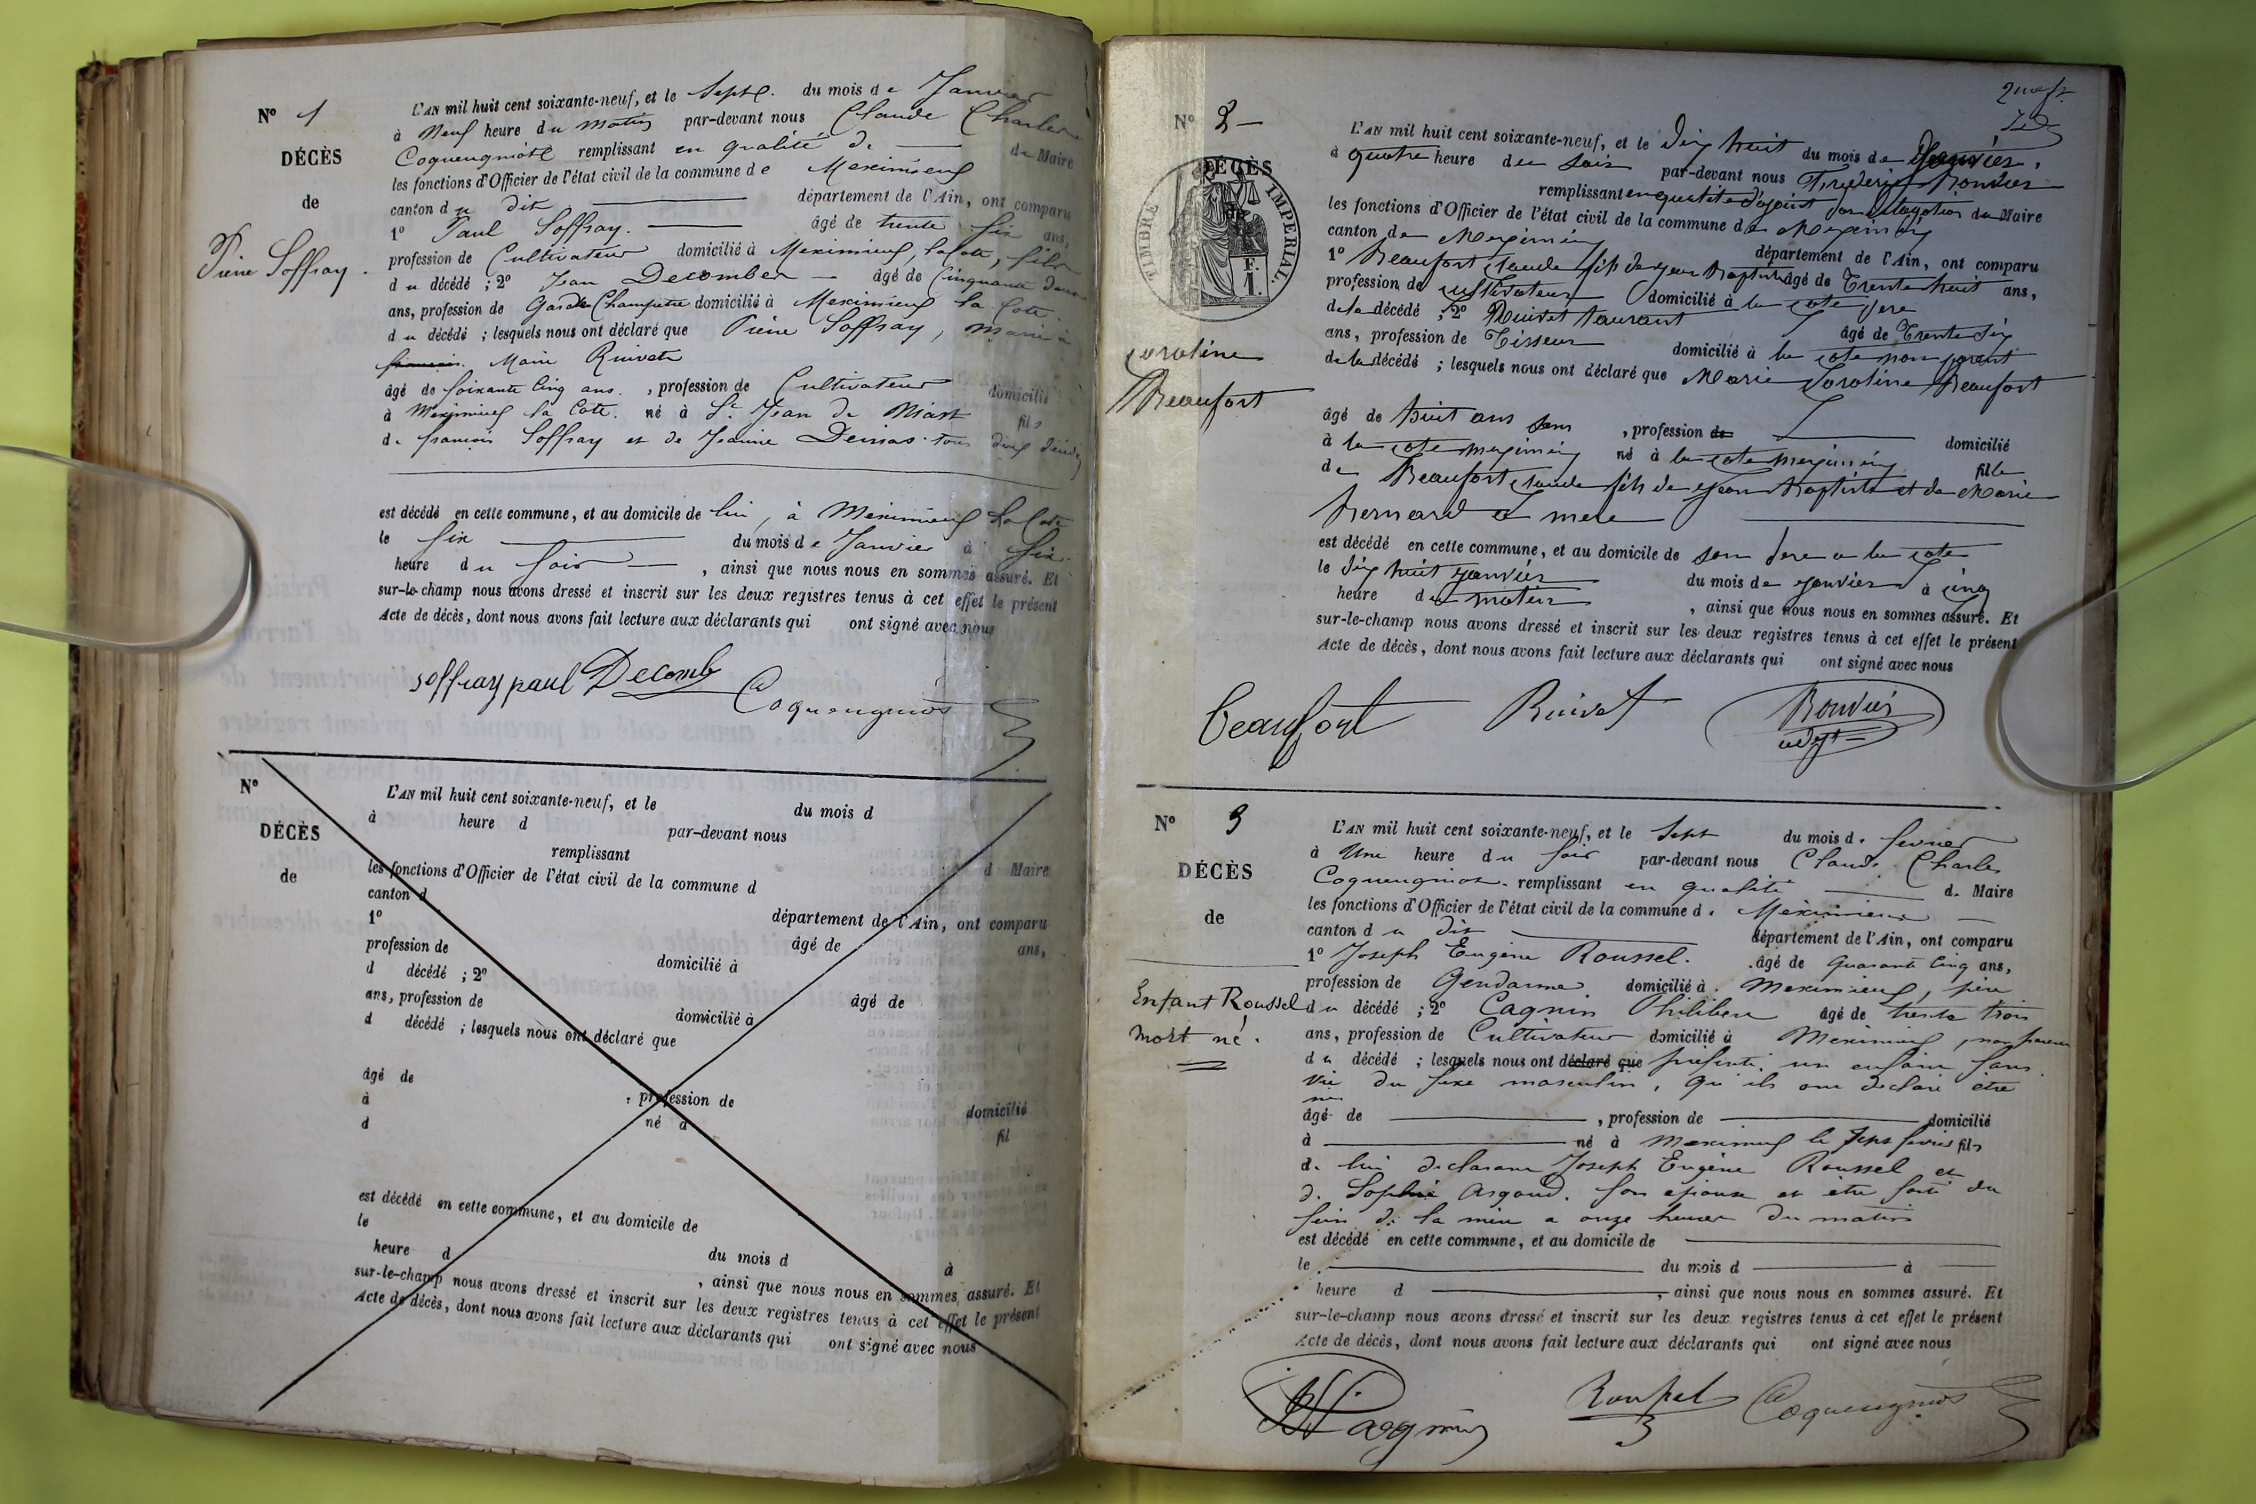 N° 1
DÉCÈS
de
Pierre Soffray.
L'AN mil huit cent soixante-neuf, et le Sept. du mois de Janvier
à Neuf heure du Matin par-devant nous Claude Charles
Coquengniot remplissant en qualité de du Maire
les fonctions d'Officier de l'état civil de la commune de Meximieux
canton du dit département de l'Ain, ont comparu
1° Paul Soffray. âgé de trente six ans,
profession de Cultivateur domicilié à Meximieux, la Cote, fils
du décédé ; 2° Jean Decomber âgé de Cinquante deux
ans, profession de Garde Champetre domicilié à Meximieux la Cote.
du décédé ; lesquels nous ont déclaré que Pierre Soffray, Marié à
Marie Ruivet
âgé de soixante cinq ans. , profession de Cultivateur domicilié
à Meximieux la Cote. né à St Jean de Niost fils
de françois Soffray et de Jeanne tous deux
est décédé en cette commune, et au domicile de lui, à Meximieux La Cote
le six du mois de Janvier à six
heure du soir , ainsi que nous nous en sommes assuré. Et
sur-le-champ nous avons dressé et inscrit sur les deux registres tenus à cet effet le présent
Acte de décès, dont nous avons fait lecture aux déclarants qui ont signé avec nous
soffray paul Decomb Coquengniot
N°
DÉCÈS
de
L'AN mil huit cent soixante-neuf, et le du mois d
à heure d par-devant nous
remplissant d Maire
les fonctions d'Officier de l'état civil de la commune d
canton d département de l'Ain, ont comparu
1° âgé de ans,
profession de domicilié à
d décédé ; 2° âgé de
ans, profession de domicilié à
d décédé ; lesquels nous ont déclaré que
âgé de , profession de domicilié
à né à fil
d
est décédé en cette commune, et au domicile de
le du mois d à
heure d , ainsi que nous nous en sommes assuré. Et
sur-le-champ nous avons dressé et inscrit sur les deux registres tenus à cet effet le présent
Acte de décès, dont nous avons fait lecture aux déclarants qui ont signé avec nous
N° 2
DÉCÈS
de
TIMBRE IMPERIAL.
F.
1.
Caroline
Beaufort
L'AN mil huit cent soixante-neuf, et le dix huit du mois de Janvier,
à quatre heure du soir par-devant nous Frederic Bouvier
remplissant en qualite d'ajoint par delagation du Maire
les fonctions d'Officier de l'état civil de la commune de Meximieux
canton de Meximieux département de l'Ain, ont comparu
1° Beaufort Claude fils de Jean Baptiste âgé de Trente huit ans,
profession de cultivateur domicilié à la cote pere
de la décédé ; 2° Ruivet Laurant âgé de Trente six
ans, profession de Tisseur domicilié à la cote non parent
de la décédé ; lesquels nous ont déclaré que Marie Caroline Beaufort
âgé de huit ans sans , profession de domicilié
à la cote meximieux né à la cote meximieux fille
de Beaufort Claude fils de Jean Baptiste et de Marie
Bernard sa mere
est décédé en cette commune, et au domicile de son pere a la cote
le dix huit janvier du mois de janvier à cinq
heure du matin , ainsi que nous nous en sommes assuré. Et
sur-le-champ nous avons dressé et inscrit sur les deux registres tenus à cet effet le présent
Acte de décès, dont nous avons fait lecture aux déclarants qui ont signé avec nous
beaufort Ruivet Bouvier
adjt
N° 3
DÉCÈS
de
Enfant Roussel
mort né.
L'AN mil huit cent soixante-neuf, et le Sept du mois de fevrier
à Une heure du soir par-devant nous Claude Charles
Coquengniot. remplissant en qualité de Maire
les fonctions d'Officier de l'état civil de la commune de Meximieux
canton du dit département de l'Ain, ont comparu
1° Joseph Eugène Roussel. âgé de quarante cinq ans,
profession de Gendarme domicilié à Meximieux, père
du décédé ; 2° Cagnin Philibert âgé de trente trois
ans, profession de Cultivateur domicilié à Meximieux, non parent
du décédé ; lesquels nous ont déclaré que présenté un enfant sans
vie du sexe masculin, qu'ils ont déclaré être
âgé de , profession de domicilié
à né à Meximieux le sept fevrier fils
de lui déclarant Joseph Eugène Roussel et
de Sophie Argoud. son epouse et être sorti du
sein de la mère a onze heures du matin
est décédé en cette commune, et au domicile de
le du mois d à
heure d , ainsi que nous nous en sommes assuré. Et
sur-le-champ nous avons dressé et inscrit sur les deux registres tenus à cet effet le présent
Acte de décès, dont nous avons fait lecture aux déclarants qui ont signé avec nous
Cagnin Roussel Coquengniot